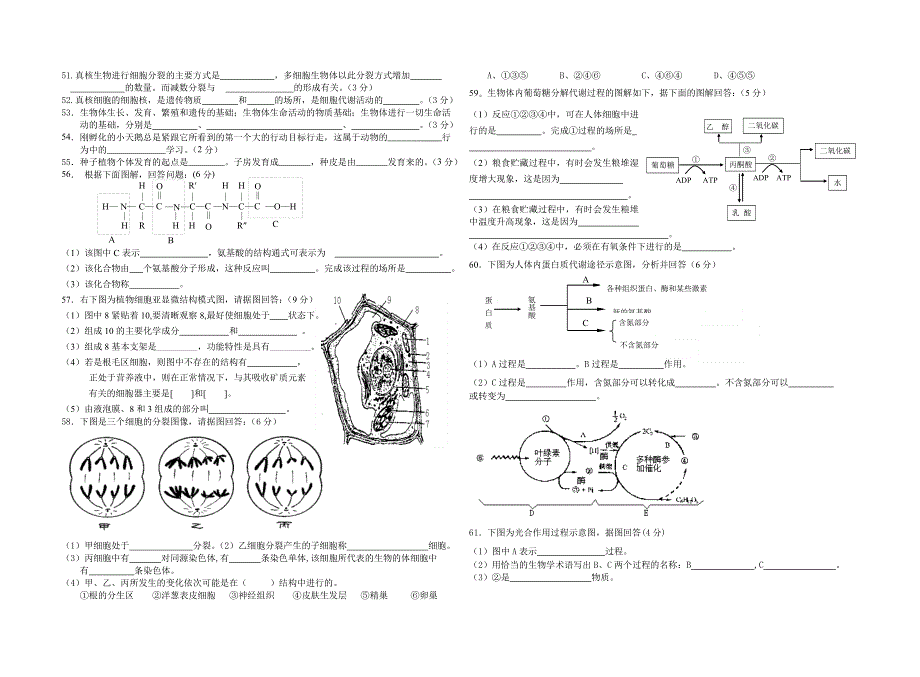 51.真核生物进行细胞分裂的主要方式是____________，多细胞生物体以此分裂方式增加_______
___________的数量。而减数分裂与 _______________的形成有关。（3 分）
52.真核细胞的细胞核，是遗传物质________和______的场所，是细胞代谢活动的________。（3 分）
53．生物体生长、发育、繁殖和遗传的基础；生物体生命活动的物质基础；生物体进行一切生命活
动的基础，分别是__________、______________________________、________________。（3 分）
54．刚孵化的小天鹅总是紧跟它所看到的第一个大的行动目标行走，这属于动物的____________行
为中的____________学习。（2 分）
55．种子植物个体发育的起点是________．子房发育成________，种皮是由_______发育来的。（3 分）
56． 根据下面图解，回答问题:（6 分）
H R′ O H H O
H—N—C—C—N—C—C—N—C—C—O—H
H R O H H R″ C
A B
（1）该图中 C 表示______________，氨基酸的结构通式可表示为 ______________________。
（2）该化合物由___个氨基酸分子形成，这种反应叫__________。完成该过程的场所是__________。
（3）该化合物称___________。
57．右下图为植物细胞亚显微结构模式图，请据图回答：（9 分）
（1）图中 8 紧贴着 10,要清晰观察 8,最好使细胞处于____状态下。
（2）组成 10 的主要化学成分___________和___________ 。
（3）组成 8 基本支架是_________，功能特性是具有_________
（4）若是根毛区细胞，则图中不存在的结构有___________，
正处于营养液中，则在正常情况下，与其吸收矿质元素
有关的细胞器主要是[ ]和[ ]。
（5）由液泡膜、8 和 3 组成的部分叫_________________。
10 9 8
1
2
3
4
5
6
7
58．下图是三个细胞的分裂图像，请据图回答：（6 分）
甲 乙 丙
（1）甲细胞处于______________分裂。（2）乙细胞分裂产生的子细胞称__________________细胞。
（3）丙细胞中有_______对同源染色体,有_______条染色单体,该细胞所代表的生物的体细胞中
有__________条染色体。
（4）甲、乙、丙所发生的变化依次可能是在（ ）结构中进行的。
①根的分生区 ②洋葱表皮细胞 ③神经组织 ④皮肤生发层 ⑤精巢 ⑥卵巢
A、①③⑤ B、②④⑥ C、④⑥④ D、④⑤⑤
59。生物体内葡萄糖分解代谢过程的图解如下，据下面的图解回答：（5 分）
（1）反应①②③④中，可在人体细胞中进
行的是__________。完成①过程的场所是_
______________________________________。
（2）粮食贮藏过程中，有时会发生粮堆湿
度增大现象，这是因为______________
___________________________________。
（3）在粮食贮藏过程中，有时会发生粮堆
中温度升高现象，这是因为_____________
____________________________________________。
（4）在反应①②③④中，必须在有氧条件下进行的是___________。
乙 醇 二氧化碳
③
葡萄糖 ① 丙酮酸 ② 二氧化碳
ADP ATP ADP ATP
④ 水
乳 酸
60．下图为人体内蛋白质代谢途径示意图，分析并回答（6 分）
蛋白质 氨基酸
A 各种组织蛋白、酶和某些激素
B 新的氨基酸
C 含氮部分
不含氮部分
（1）A 过程是___________。B 过程是__________作用。
（2）C 过程是_________作用，含氮部分可以转化成_________。不含氮部分可以__________
或转变为______________。
① ½O₂
A [H] 供氢 2C₃ ③
⑥ 叶绿素分子 酶 酶 C 多种酶参加催化 ④
B ② 供能
⑤+Pi C₆H₁₂O₆
D E
61．下图为光合作用过程示意图，据图回答(4 分)
（1）图中 A 表示_______________过程。
（2）用恰当的生物学术语写出 B、C 两个过程的名称：B______________,C________________。
（3）②是__________________物质。